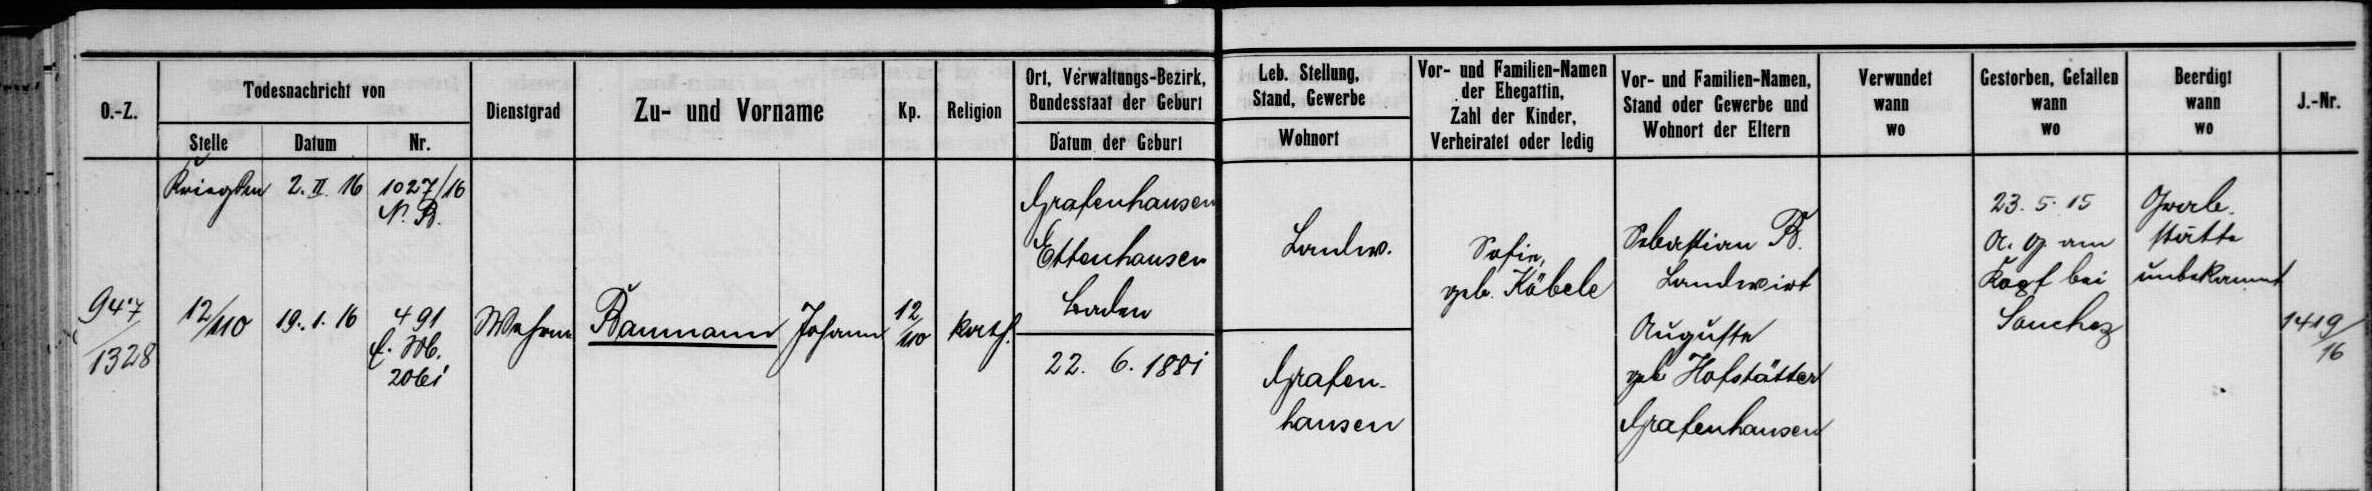 O.-Z.
Todesnachricht von
Stelle
Datum
Nr.
Dienstgrad
Zu- und Vorname
Kp.
Religion
Ort, Verwaltungs-Bezirk,
Bundesstaat der Geburt
Datum der Geburt
Leb. Stellung,
Stand, Gewerbe
Wohnort
Vor- und Familien-Namen
der Ehegattin,
Zahl der Kinder,
Verheiratet oder ledig
Vor- und Familien-Namen,
Stand oder Gewerbe und
Wohnort der Eltern
Verwundet
wann
wo
Gestorben, Gefallen
wann
wo
Beerdigt
wann
wo
J.-Nr.
947/1328
2. II. 16
1027/16
N. B.
12/110
19. 1. 16
491
2061
Wehrm
Baumann Johann
12/110
kath.
Grafenhausen
Ettenhausen
Baden
22. 6. 1881
Landw.
Grafen-
hausen
Sofie,
geb. Käbele
Sebastian B.
Landwirt
Auguste
geb. Hofstätter
Grafenhausen
23. 5. 15
a. g. am
Kopf bei
Souchez
Grab-
stätte
unbekannt
1419/16